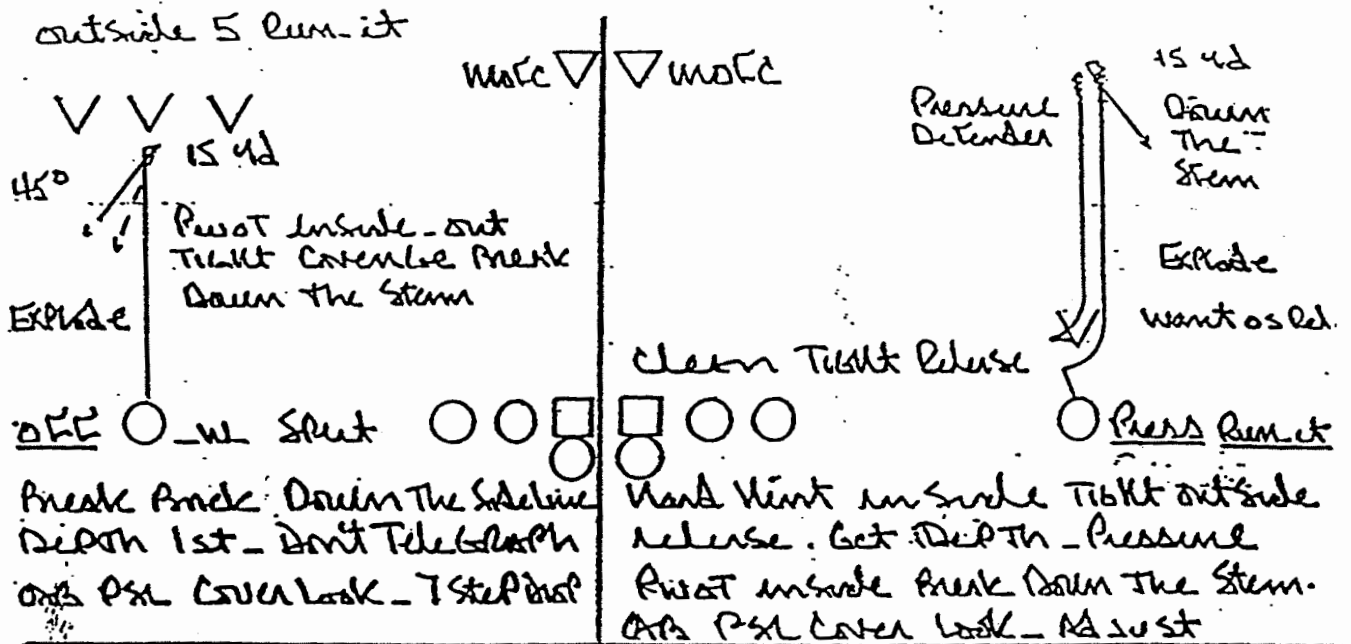 outside 5 Run-it
MOFC
MOFC
15 yd
45°
Pivot inside-out
Tight Coverage Break
Down The Stem
Explode
OFF
-NL Split
Break Back Down The Sideline
Depth 1st - Don't Telegraph
QB PSL Cover Look - 7 Step Drop
15 yd
Pressure
Defender
Down
The
Stem
Explode
Want os Rel.
Clean Tight Release
Press Run-it
Hard Hint inside Tight outside
release. Get Depth - Pressure
Pivot inside Break Down The Stem.
QB PSL Cover Look - Adjust